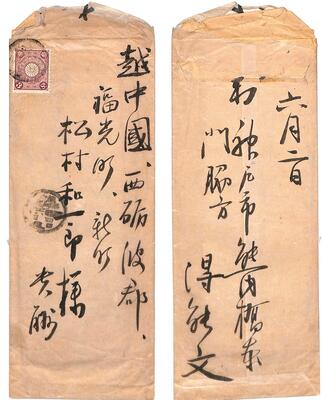 越中國、西砺波郡、
福光町、新町
松村和一郎様
貴酬
六月二日
神戸市熊内橋東
門脇方
得能文